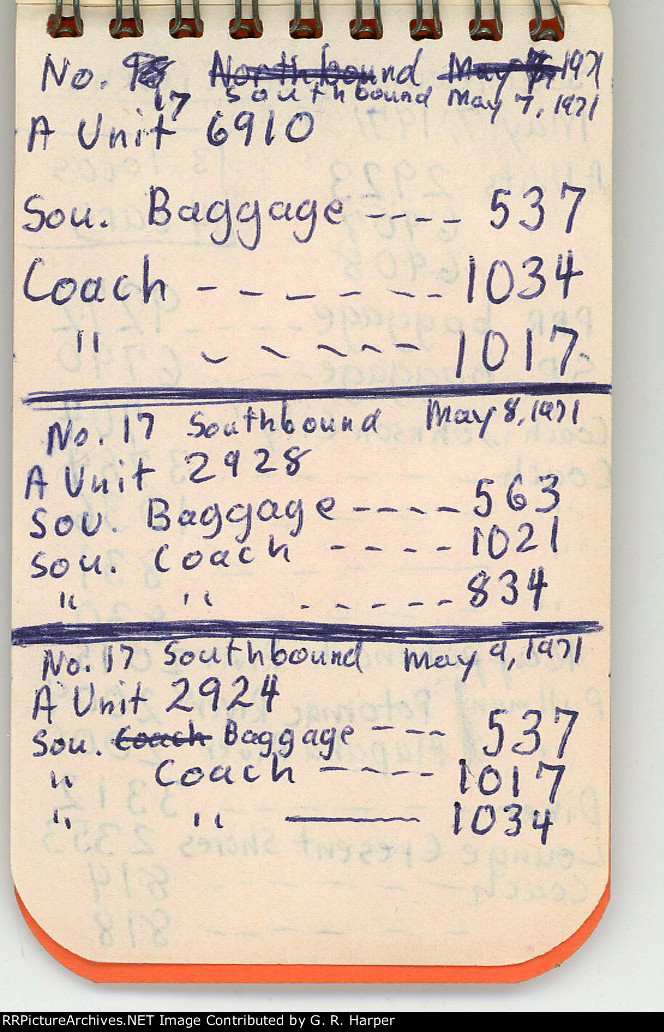 No. 18 Northbound May 7, 1971
17 Southbound May 7, 1971
A Unit 6910
Sou. Baggage ---- 537
Coach - - - - - -- 1034
" - - - - - 1017
No. 17 Southbound May 8, 1971
A Unit 2928
Sou. Baggage ---- 563
Sou. Coach - - - - - 1021
" " - - - - - 834
No. 17 Southbound May 9, 1971
A Unit 2924
Sou. Coach Baggage --- 537
" Coach ---- 1017
" " —— 1034
RRPictureArchives.NET Image Contributed by G. R. Harper